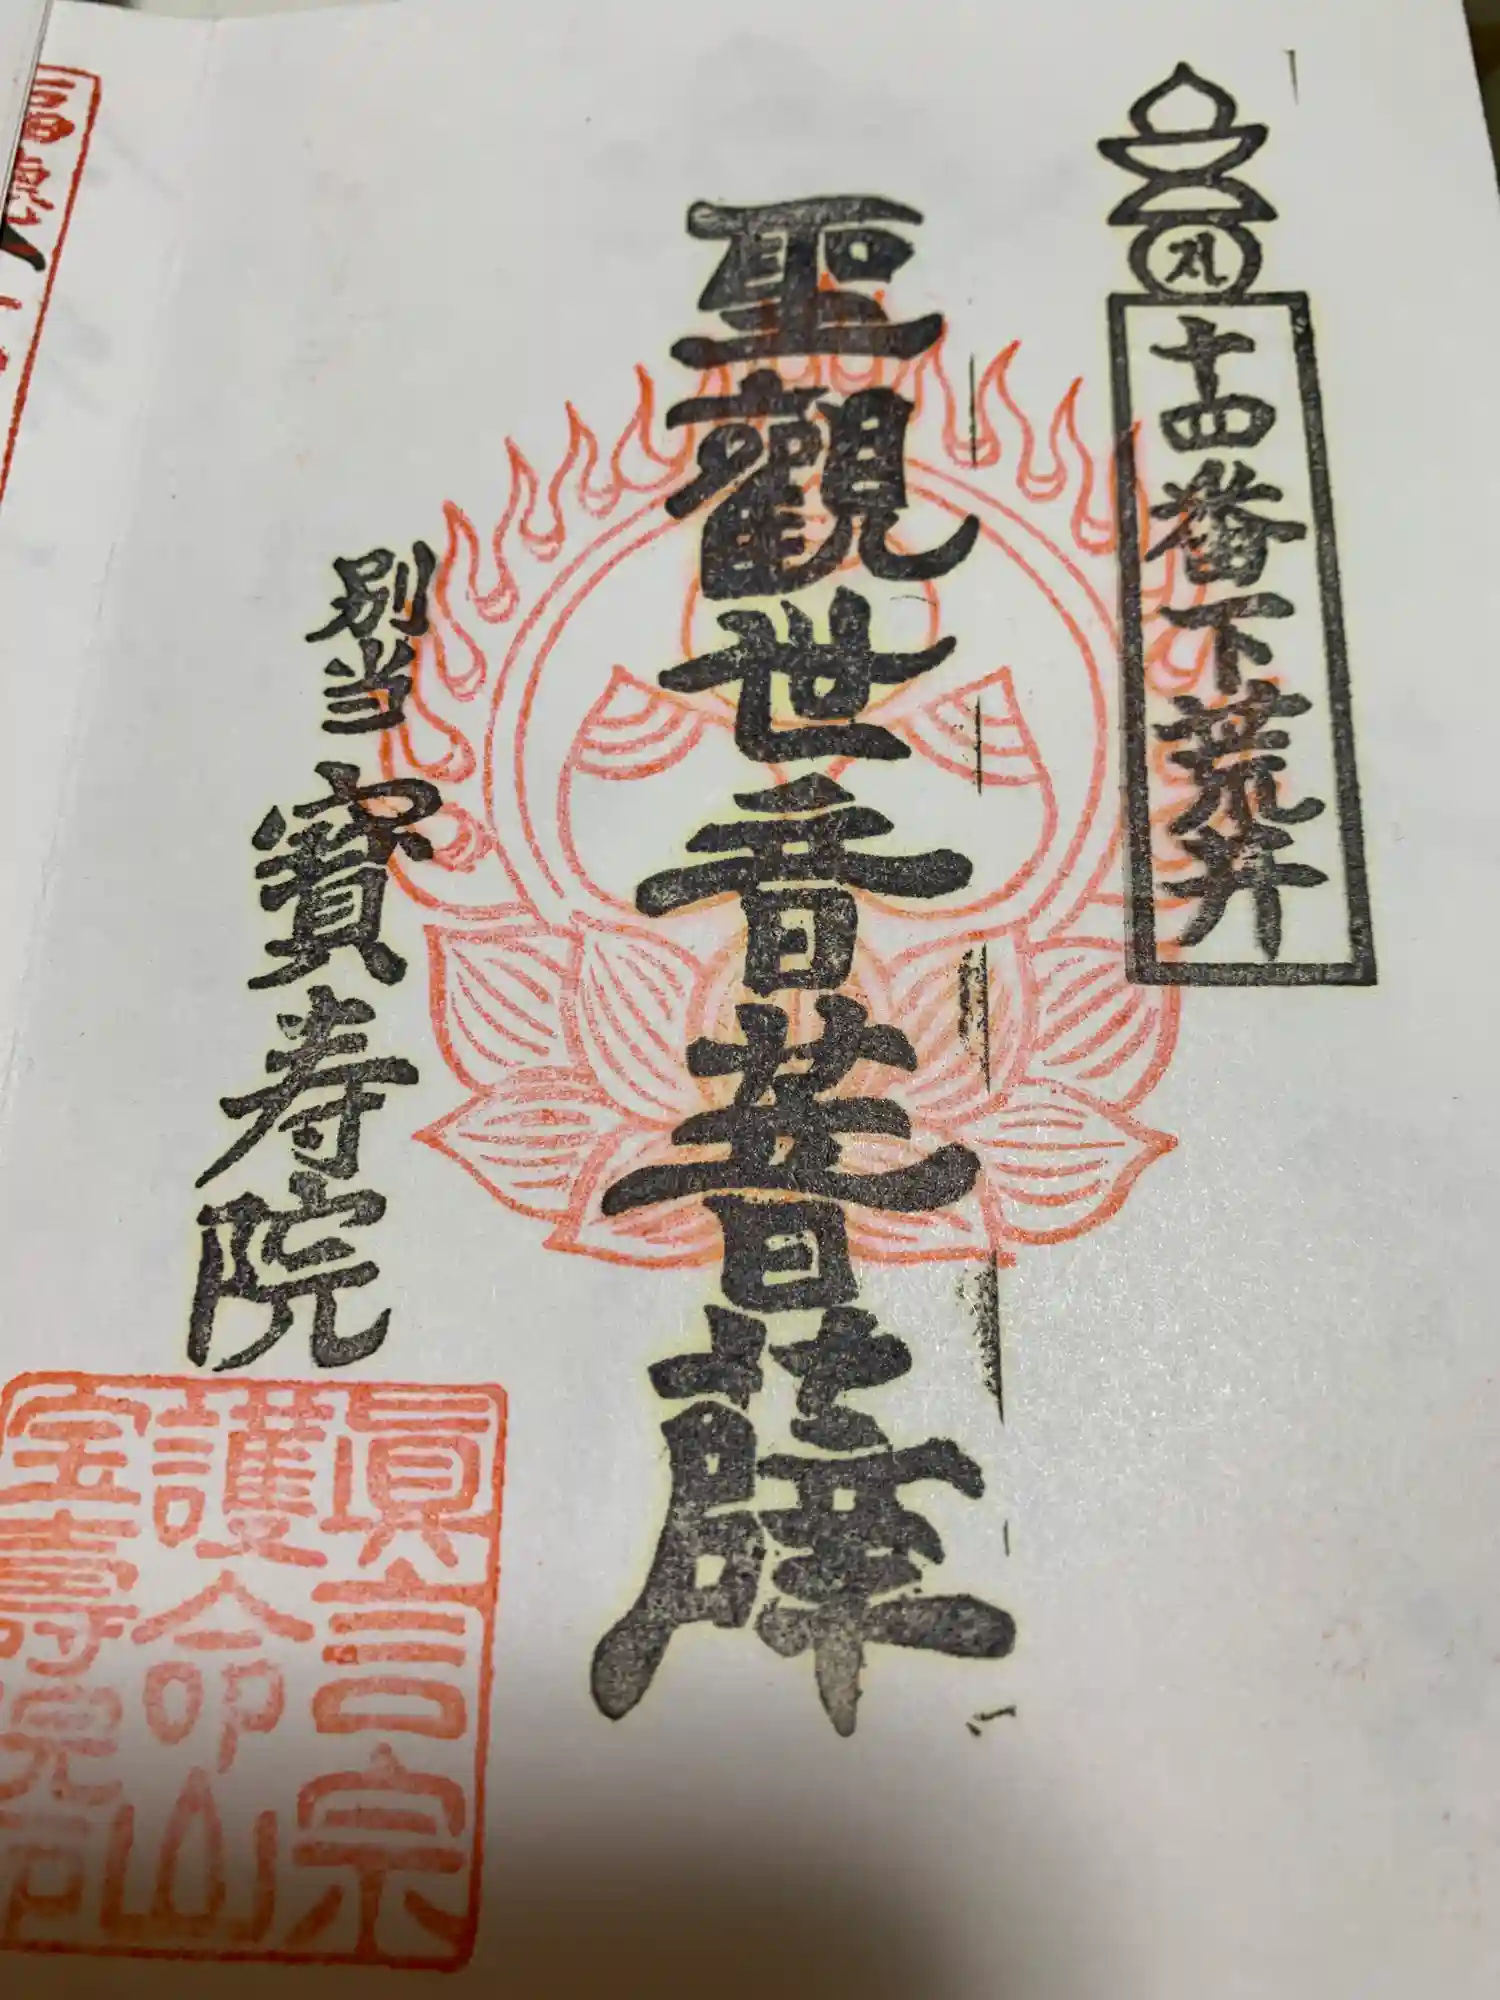 札
十四番下荒井
聖觀世音菩薩
別当 寳寿院
眞言宗
護命山
宝壽院